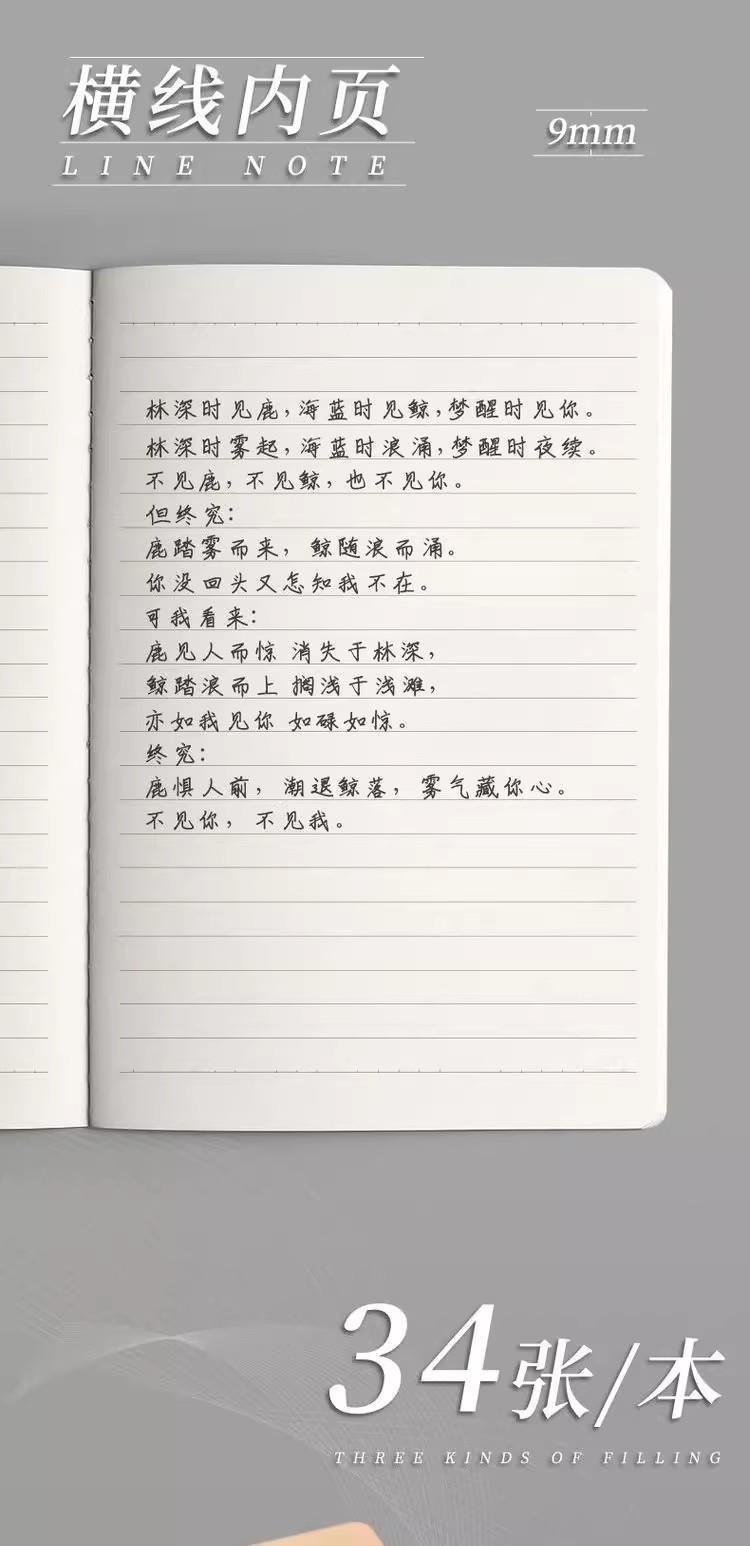 横线内页
LINE NOTE
9mm
林深时见鹿,海蓝时见鲸,梦醒时见你。
林深时雾起,海蓝时浪涌,梦醒时夜续。
不见鹿,不见鲸,也不见你。
但终究:
鹿踏雾而来,鲸随浪而涌。
你没回头又怎知我不在。
可我看来:
鹿见人而惊 消失于林深,
鲸踏浪而上 搁浅于浅滩,
亦如我见你 如碌如惊。
终究:
鹿惧人前,潮退鲸落,雾气藏你心。
不见你,不见我。
34张/本
THREE KINDS OF FILLING